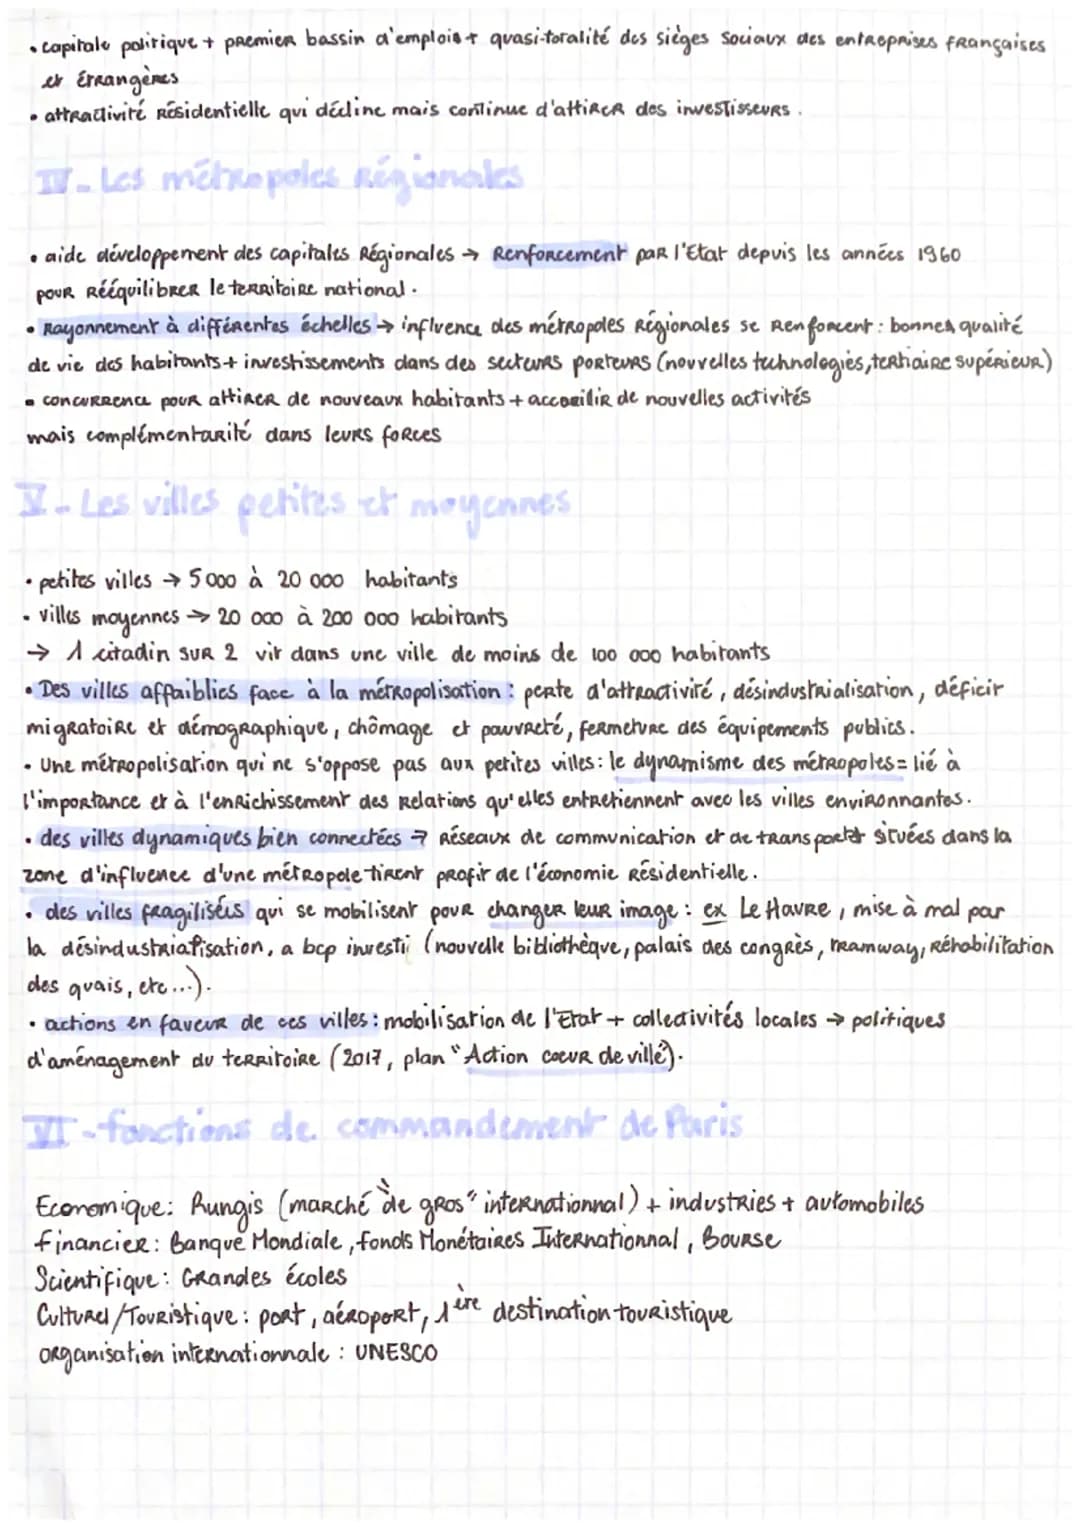 • capitale politique + premier bassin d'emplois + quasi-totalité des sièges sociaux des entreprises françaises
et étrangères
• attractivité résidentielle qui décline mais continue d'attirer des investisseurs.
IV - Les métropoles régionales
• aide développement des capitales régionales → Renforcement par l'Etat depuis les années 1960
pour rééquilibrer le territoire national.
• Rayonnement à différentes échelles → influence des métropoles régionales se renforcent : bonnes qualité
de vie des habitants + investissements dans des secteurs porteurs (nouvelles technologies, tertiaire supérieur)
• concurrence pour attirer de nouveaux habitants + accueillir de nouvelles activités
mais complémentarité dans leurs forces
V - Les villes petites et moyennes
• petites villes → 5 000 à 20 000 habitants
• villes moyennes → 20 000 à 200 000 habitants
→ 1 citadin sur 2 vit dans une ville de moins de 100 000 habitants
• Des villes affaiblies face à la métropolisation : perte d'attractivité, désindustrialisation, déficit
migratoire et démographique, chômage et pauvreté, fermeture des équipements publics.
• Une métropolisation qui ne s'oppose pas aux petites villes : le dynamisme des métropoles = lié à
l'importance et à l'enrichissement des relations qu'elles entretiennent avec les villes environnantes.
• des villes dynamiques bien connectées → réseaux de communication et de transports situées dans la
zone d'influence d'une métropole tirent profit de l'économie résidentielle.
• des villes fragilisées qui se mobilisent pour changer leur image : ex Le Havre, mise à mal par
la désindustrialisation, a bcp investi (nouvelle bibliothèque, palais des congrès, tramway, réhabilitation
des quais, etc...).
• actions en faveur de ces villes : mobilisation de l'Etat + collectivités locales → politiques
d'aménagement du territoire (2017, plan "Action cœur de ville").
VI - fonctions de commandement de Paris
Economique : Rungis (marché "de gros" internationnal) + industries + automobiles
financier : Banque Mondiale, fonds Monétaires Internationnal, Bourse
Scientifique : Grandes écoles
Culturel/Touristique : port, aéroport, 1ère destination touristique
organisation internationnale : UNESCO